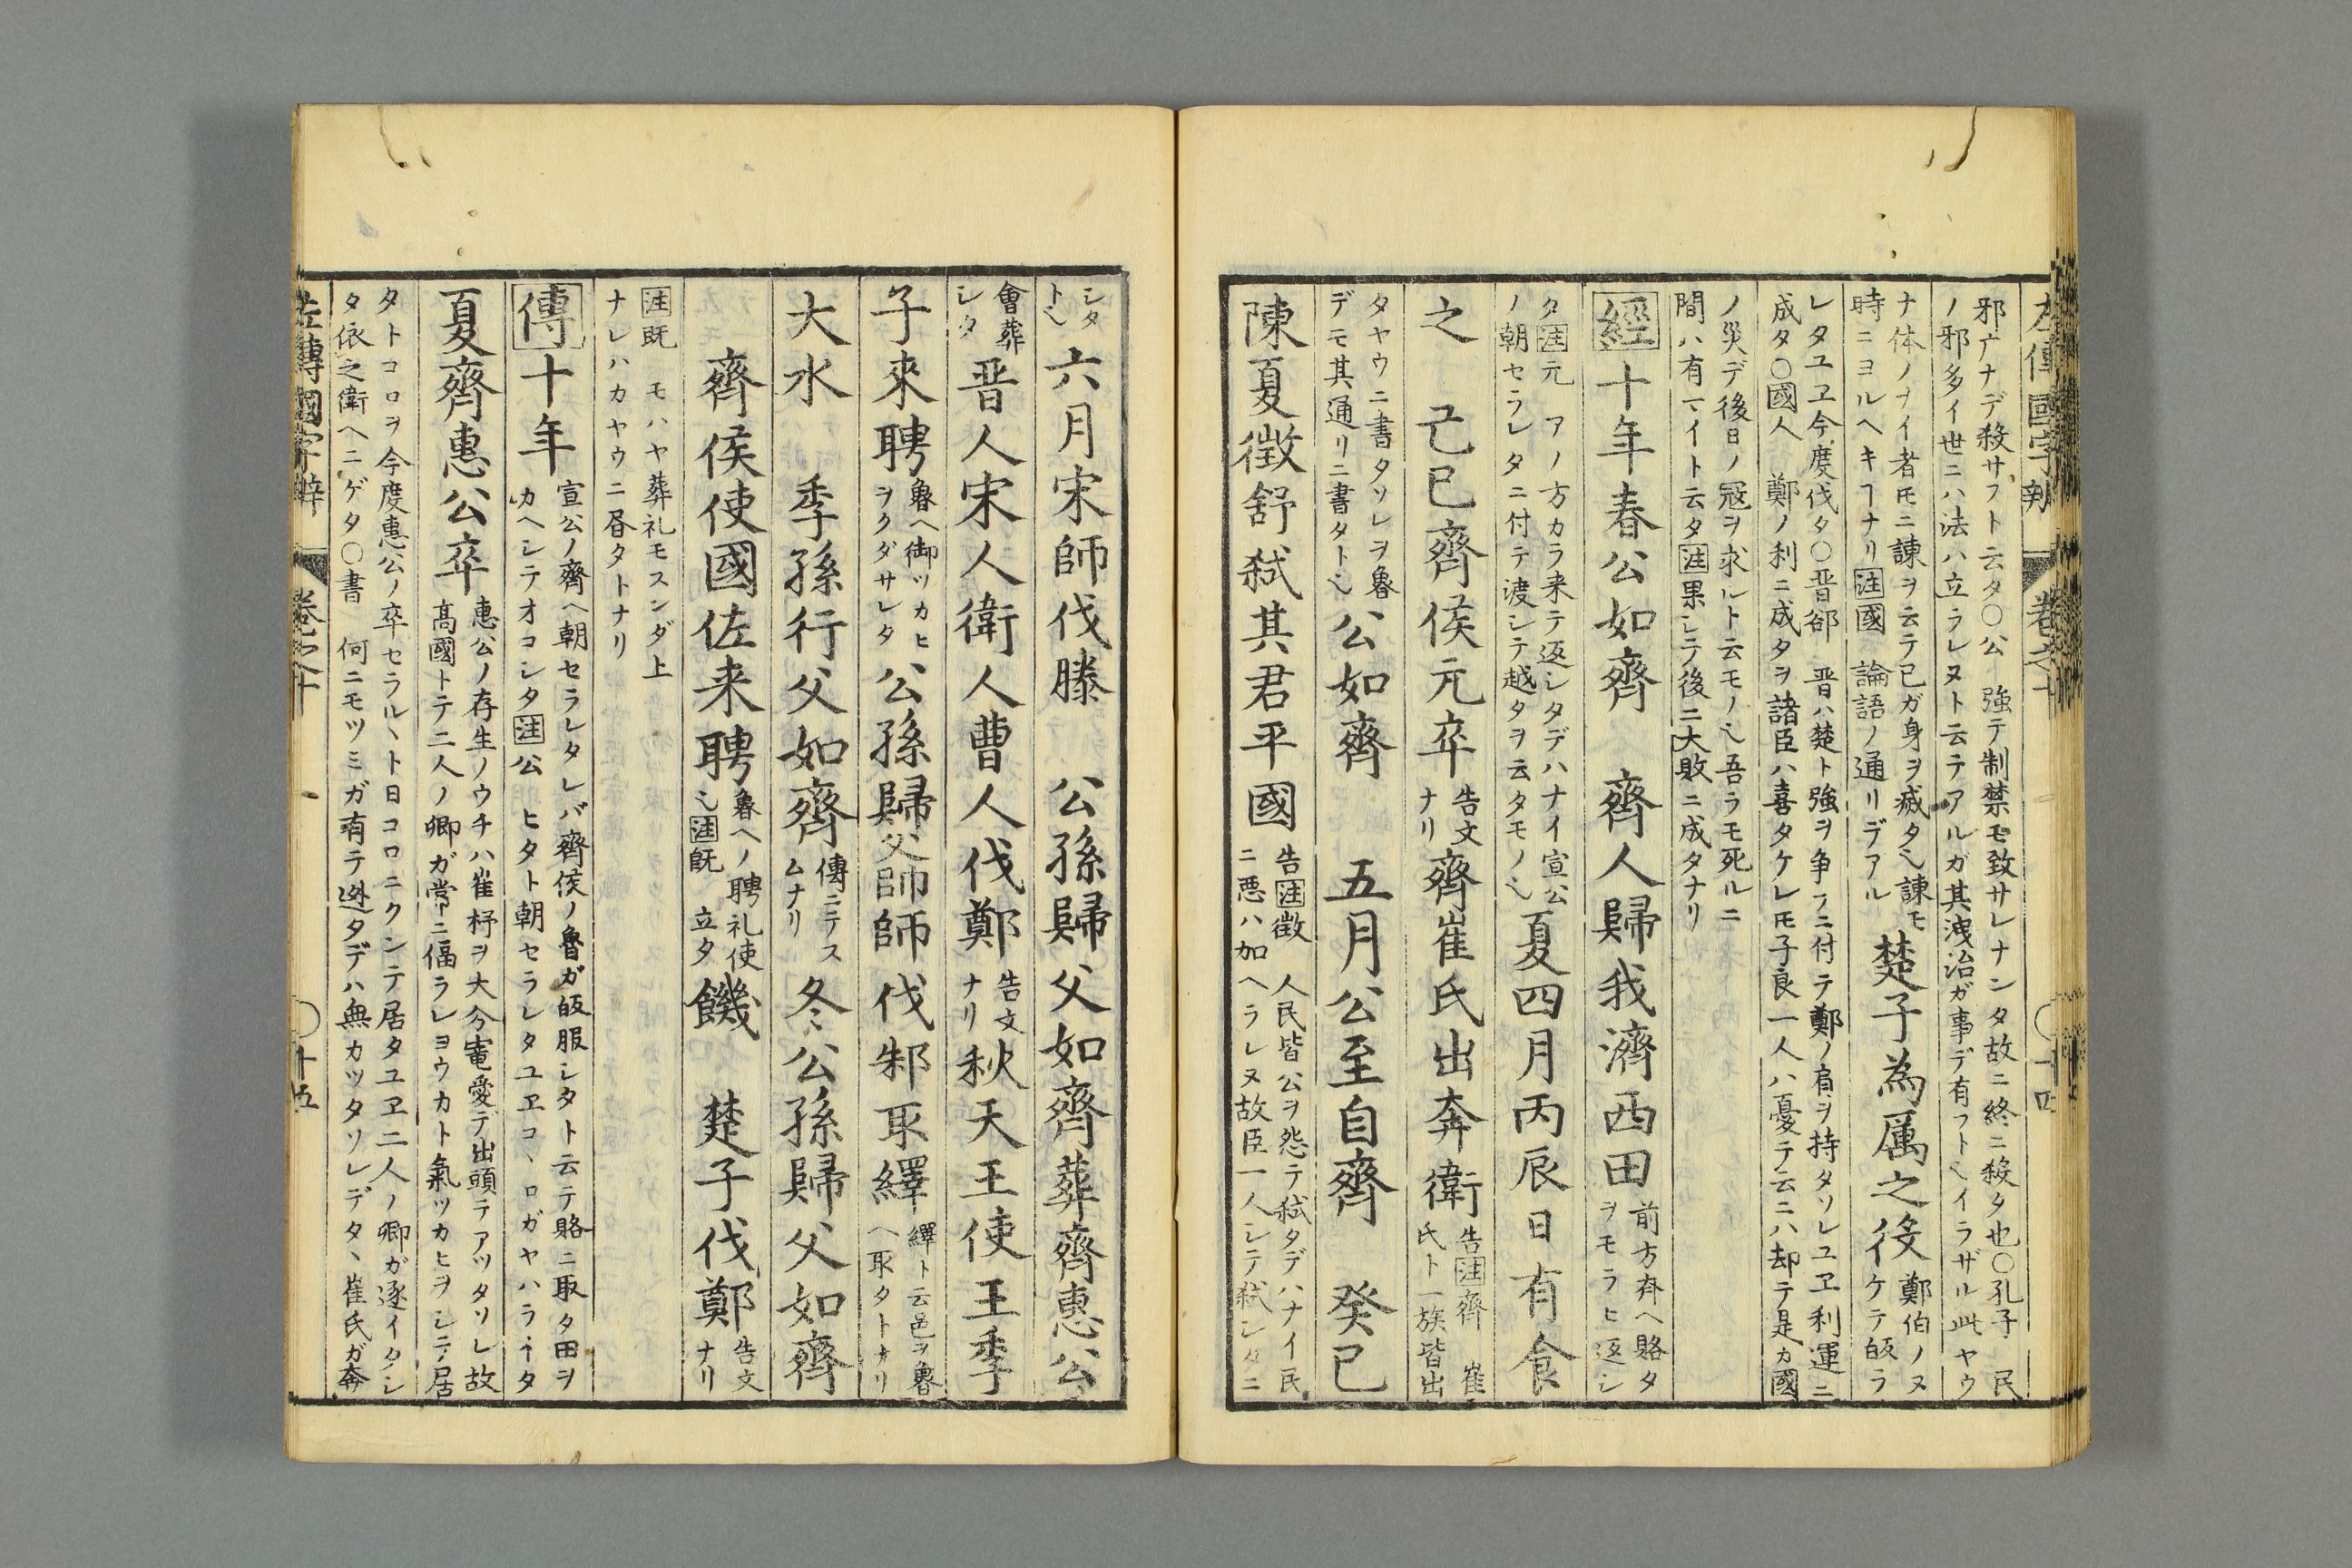 左傳國字辨 卷之十 〇十四
邪亡ナデ殺サフト云タ〇公 強テ制禁モ致サレナンタ故ニ終ニ殺タ也〇孔子 民
ノ邪多イ世ニハ法ハ立ラレヌト云テアルガ其洩治ガ事デ有フトヘイラザル此ヤウ
ナ体ノナイ者モニ諫ヲ云テ已ガ身ヲ滅タヘ諫モ
時ニヨルヘキヿナリ注國 論語ノ通リデアル
楚子為厲之役
鄭伯ノヌ
ケテ皈ラ
レタユヱ今度伐タ〇晋郤 晋ハ楚ト強ヲ争フニ付テ鄭ノ肩ヲ持タソレユヱ利運ニ
成タ〇國人 鄭ノ利ニ成タヲ諸臣ハ喜タケレモ子良一人ハ憂テ云ニハ却テ是カ國
ノ災デ後日ノ冦ヲ求ルト云モノヘ吾ラモ死ルニ
間ハ有マイト云タ注果シテ後ニ大敗ニ成タナリ
經十年春公如齊 齊人歸我濟西田
前方斉ヘ賂タ
ヲモラヒ返シ
タ注元 アノ方カラ来テ返シタデハナイ宣公
ノ朝セラレタニ付テ渡シテ越タヲ云タモノヘ
夏四月丙辰日有食
之 己巳齊侯元卒
告文
ナリ
齊崔氏出奔衛
告注齊 崔
氏ト一族皆出
タヤウニ書タソレヲ魯
デモ其通リニ書タトヘ
公如齊 五月公至自齊 癸巳
陳夏徴舒弑其君平國
告注徴 人民皆公ヲ怨テ弑タデハナイ民
ニ悪ハ加ヘラレヌ故臣一人シテ弑シタニ
シタ
トヘ
六月宋師伐滕 公孫歸父如齊葬齊惠公
會葬
シタ
晋人宋人衛人曹人伐鄭
告文
ナリ
秋天王使王季
子來聘
魯ヘ御ツカヒ
ヲクダサレタ
公孫歸父師師伐邾取繹
繹ト云邑ヲ魯
ヘ取タトナリ
大水 季孫行父如齊
傳ニテス
ムナリ
冬公孫歸父如齊
齊侯使國佐来聘
魯ヘノ聘礼使
ヘ注既 立タ
饑 楚子伐鄭
告文
ナリ
注既 モハヤ葬礼モスンダ上
ナレハカヤウニ㫺タトナリ
傳十年
宣公ノ齊ヘ朝セラレタレバ齊侯ノ魯ガ皈服シタト云テ賂ニ取タ田ヲ
カヘシテオコシタ注公 ヒタト朝セラレタユヱコヽロガヤハライタ
夏齊惠公卒
惠公ノ存生ノウチハ崔杼ヲ大分竃愛デ出頭テアツタソレ故
高國トテ二人ノ卿ガ常ニ偪ラレヨウカト氣ツカヒヲシテ居
タトコロヲ今度惠公ノ卒セラルヽト日コロニクンテ居タユヱ二人ノ卿ガ逐イタシ
タ依之衛ヘニゲタ〇書 何ニモツミガ有テ迯タデハ無カツタソレデタヽ崔氏ガ奔
左傳國字辨 卷之十 〇十五